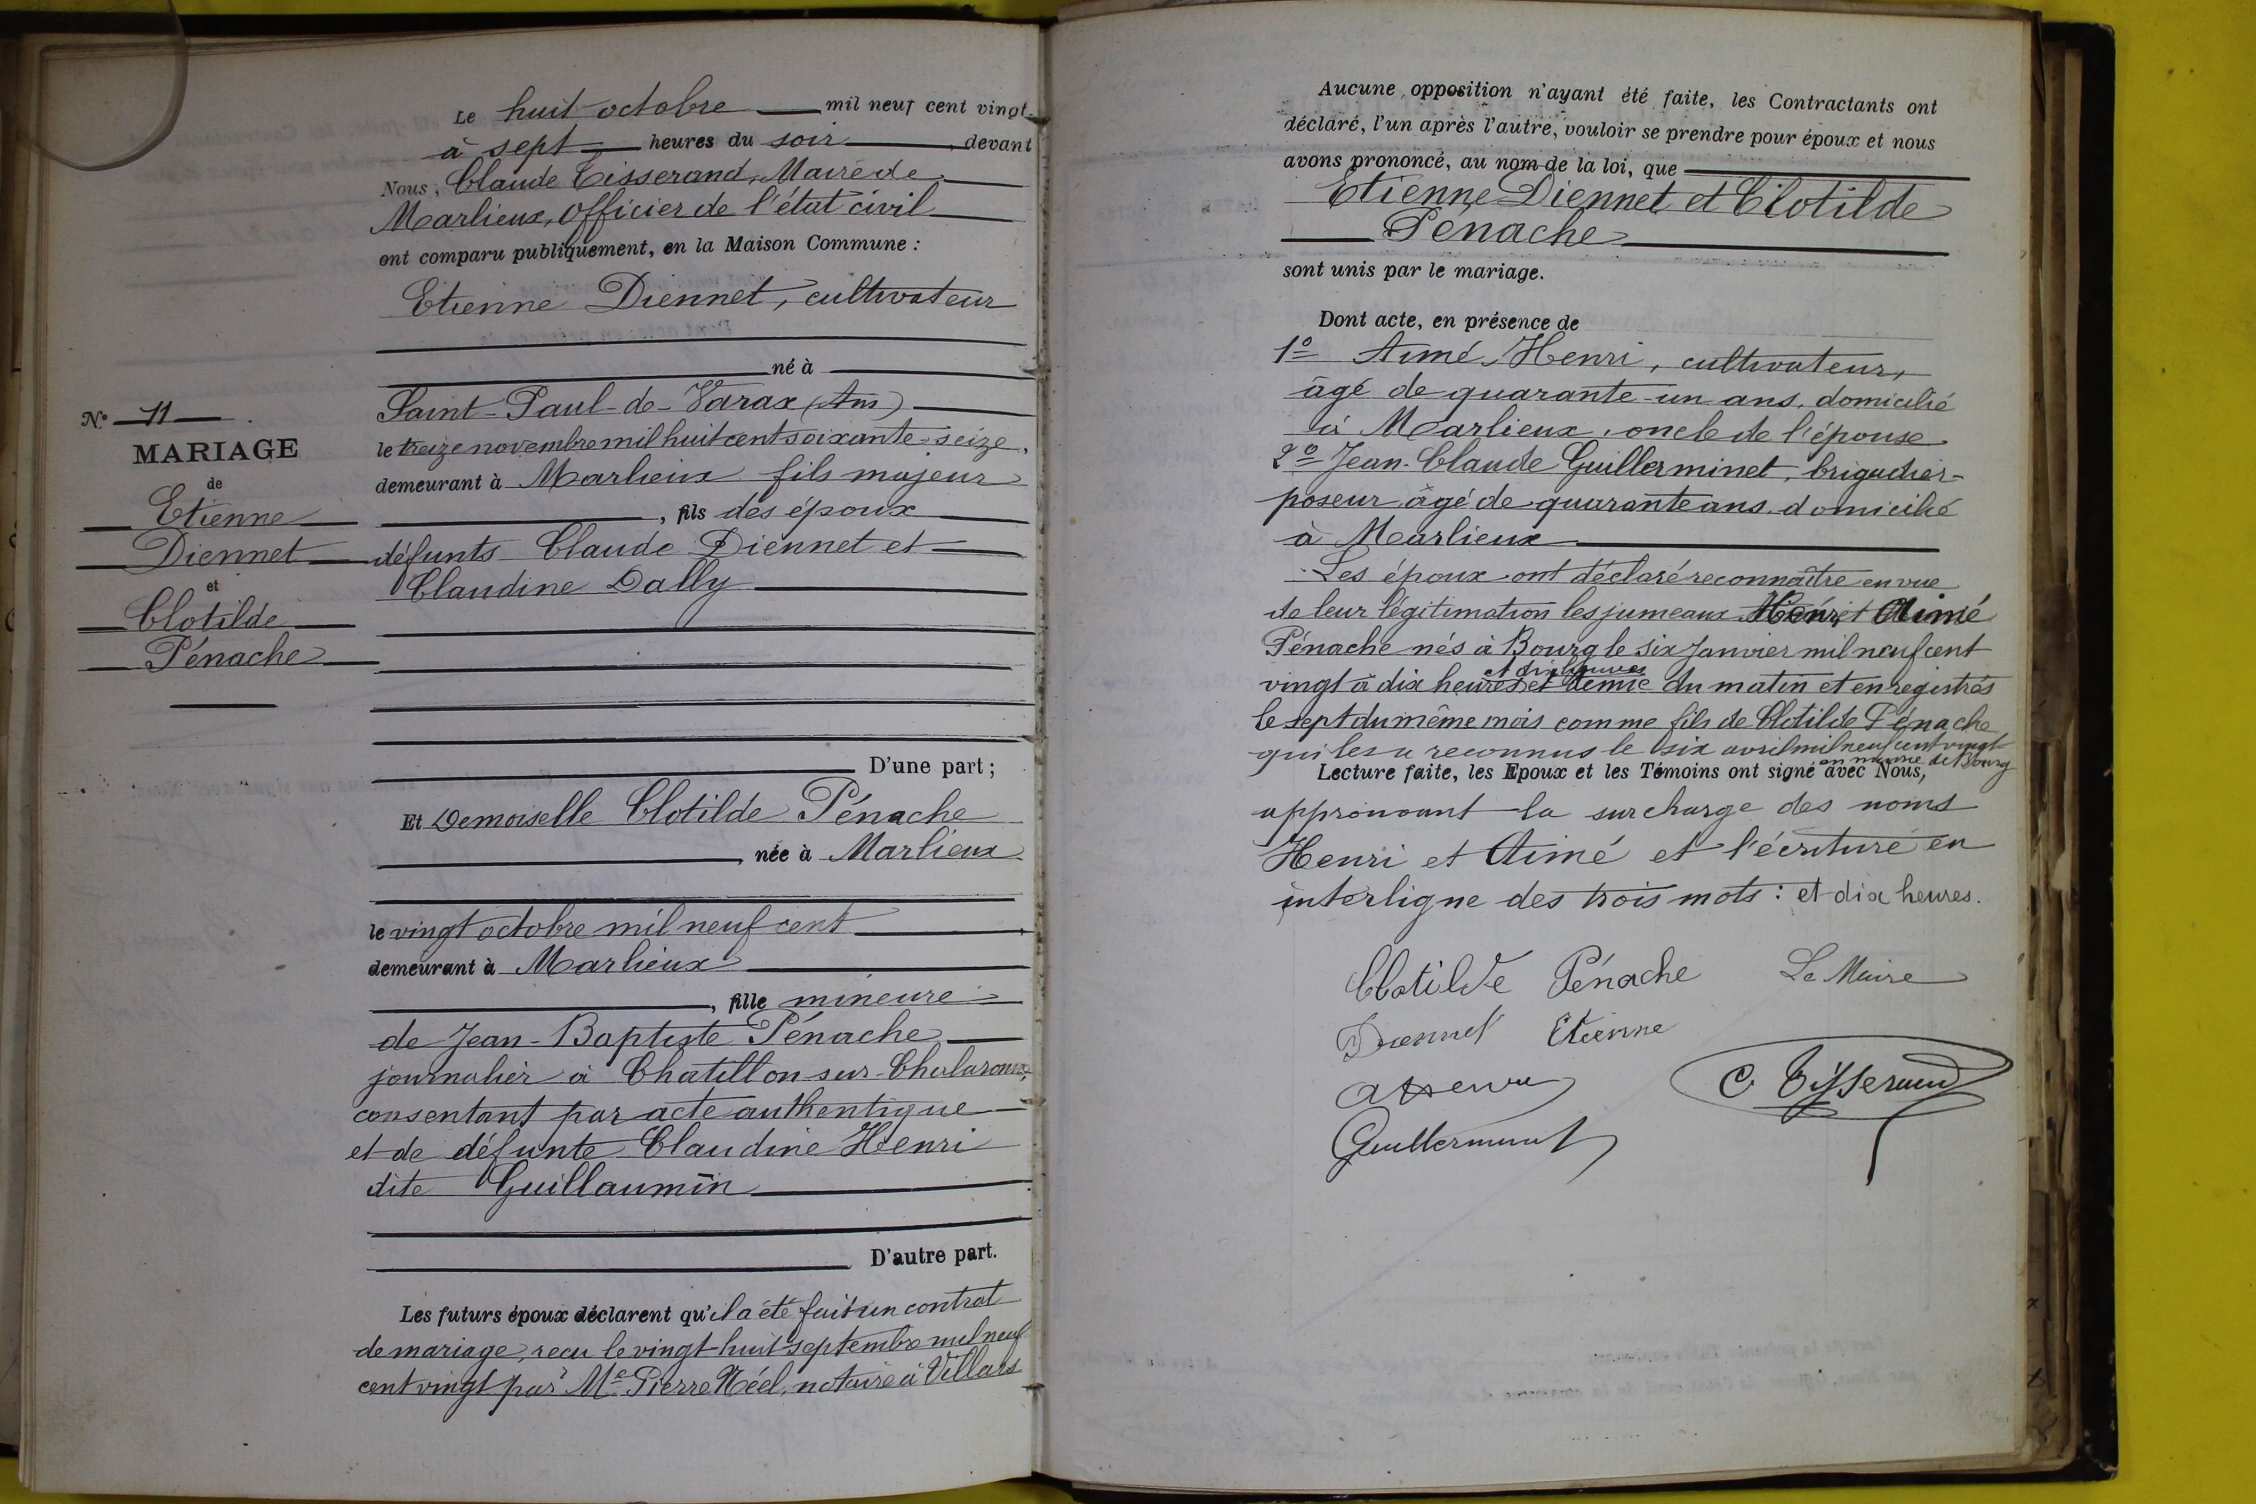 Le huit octobre mil neuf cent vingt
à sept heures du soir, devant
Nous, Claude Tisserand, Maire de
Marlieux, Officier de l'état civil
ont comparu publiquement, en la Maison Commune :
Etienne Diennet, cultivateur
né à
Saint-Paul-de-Varax (Ain)
le treize novembre mil huit cent soixante-seize,
demeurant à Marlieux fils majeur
, fils des époux
défunts Claude Diennet et
Claudine Dally
D'une part ;
Et Demoiselle Clotilde Pénache
, née à Marlieux
le vingt octobre mil neuf cent
demeurant à Marlieux
, fille mineure
de Jean-Baptiste Pénache
journalier à Chatillon-sur-Chalaronne,
consentant par acte authentique
et de défunte Claudine Henri
dite Guillaumin
D'autre part.
Les futurs époux déclarent qu'il a été fait un contrat
de mariage, recu le vingt-huit septembre mil neuf
cent vingt par Me Pierre Néel, notaire à Villars
N° 11
MARIAGE
de
Etienne
Diennet
et
Clotilde
Pénache
Aucune opposition n'ayant été faite, les Contractants ont
déclaré, l'un après l'autre, vouloir se prendre pour époux et nous
avons prononcé, au nom de la loi, que
Etienne Diennet et Clotilde
Pénache
sont unis par le mariage.
Dont acte, en présence de
1° Aimé Henri, cultivateur,
âgé de quarante-un ans, domicilié
à Marlieux, oncle de l'épouse
2° Jean-Claude Guillerminet, brigadier-
poseur âgé de quarante ans, domicilié
à Marlieux
Les époux ont déclaré reconnaître en vue
de leur légitimation les jumeaux Henri et Aimé
Pénache nés à Bourg le six Janvier mil neuf cent
et dix heures
vingt à dix heures et demie du matin et enregistrés
le sept du même mois comme fils de Clotilde Pénache
qui les a reconnus le six avril mil neuf cent vingt
en mairie de Bourg
Lecture faite, les Epoux et les Témoins ont signé avec Nous,
approuvant la surcharge des noms
Henri et Aimé et l'écriture en
interligne des trois mots : et dix heures.
Clotilde Pénache Le Maire
Diennet Etienne
C. Tisserand
Guillerminet